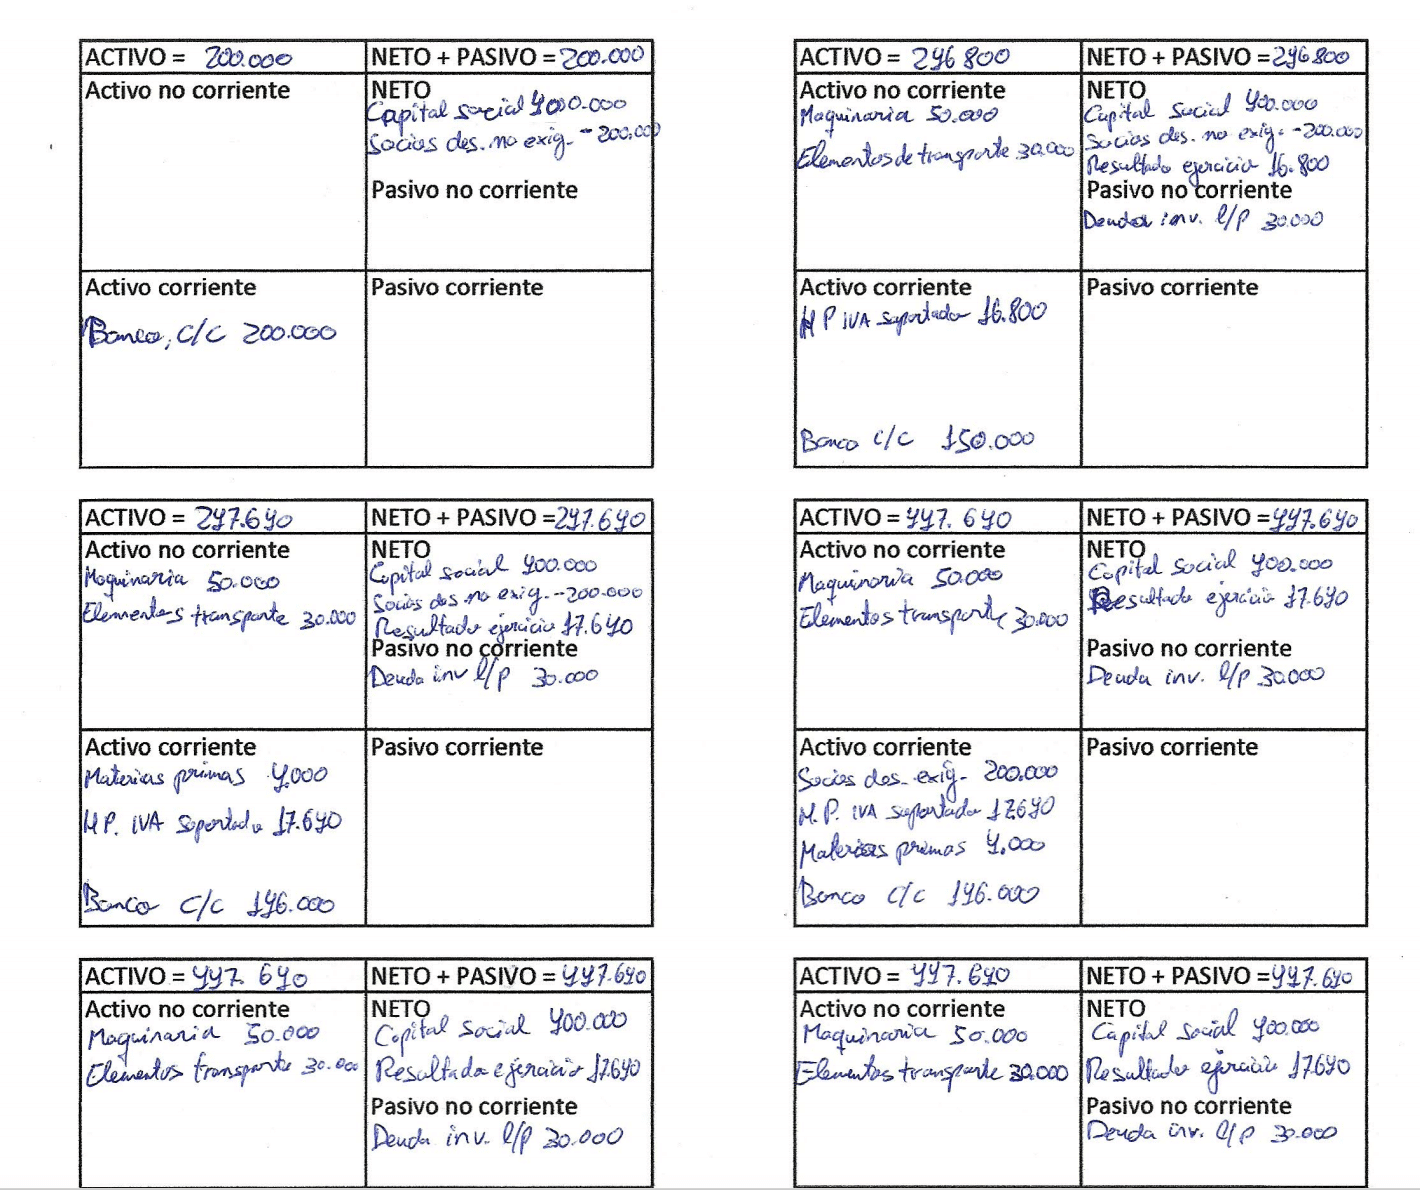 ACTIVO = 200.000
NETO + PASIVO = 200.000
Activo no corriente
NETO
Capital social 4000.000
Socios des. no exig. -200.000
Pasivo no corriente
Activo corriente
Banco, c/c 200.000
Pasivo corriente
ACTIVO = 246 800
NETO + PASIVO = 246 800
Activo no corriente
Maquinaria 50.000
Elementos de transporte 30.000
NETO
Capital social 400.000
Socios des. no exig. -200.000
Resultado ejercicio 16.800
Pasivo no corriente
Deuda inv. l/p 30.000
Activo corriente
H P IVA soportado 16.800
Banco c/c 150.000
Pasivo corriente
ACTIVO = 247.640
NETO + PASIVO = 247.640
Activo no corriente
Maquinaria 50.000
Elementos transporte 30.000
NETO
Capital social 400.000
Socios des no exig. -200.000
Resultado ejercicio 17.640
Pasivo no corriente
Deuda inv l/p 30.000
Activo corriente
Materias primas 4.000
H P. IVA soportado 17.640
Banco c/c 146.000
Pasivo corriente
ACTIVO = 447. 640
NETO + PASIVO = 447.640
Activo no corriente
Maquinaria 50.000
Elementos transporte 30.000
NETO
Capital social 400.000
Resultado ejercicio 17.640
Pasivo no corriente
Deuda inv. l/p 30.000
Activo corriente
Socios des. exig. 200.000
H. P. IVA soportado 17.640
Materias primas 4.000
Banco c/c 146.000
Pasivo corriente
ACTIVO = 447. 640
NETO + PASIVO = 447.640
Activo no corriente
Maquinaria 50.000
Elementos transporte 30.000
NETO
Capital social 400.000
Resultado ejercicio 17.640
Pasivo no corriente
Deuda inv. l/p 30.000
ACTIVO = 447.640
NETO + PASIVO = 447.640
Activo no corriente
Maquinaria 50.000
Elementos transporte 30.000
NETO
Capital social 400.000
Resultado ejercicio 17640
Pasivo no corriente
Deuda inv. l/p 30.000